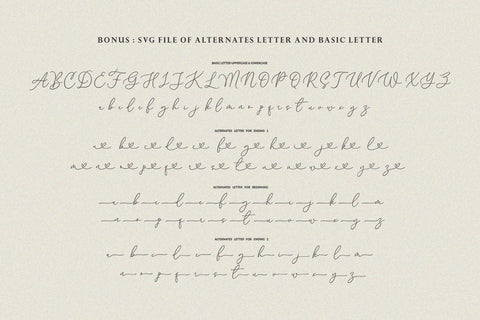 BONUS : SVG FILE OF ALTERNATES LETTER AND BASIC LETTER
BASIC LETTER UPPERCASE & LOWERCASE
A B C D E F G H I J K L M N O P Q R S T U V W X Y Z
a b c d e f g h i j k l m n o p q r s t u v w x y z
ALTERNATES LETTER FOR ENDING 1
ALTERNATES LETTER FOR BEGINNING
a b c d e f g h i j k l m
n o p q r s t u v w x y z
ALTERNATES LETTER FOR ENDING 2
a b c d e f g h i j k l m
n o p q r s t u v w x y z